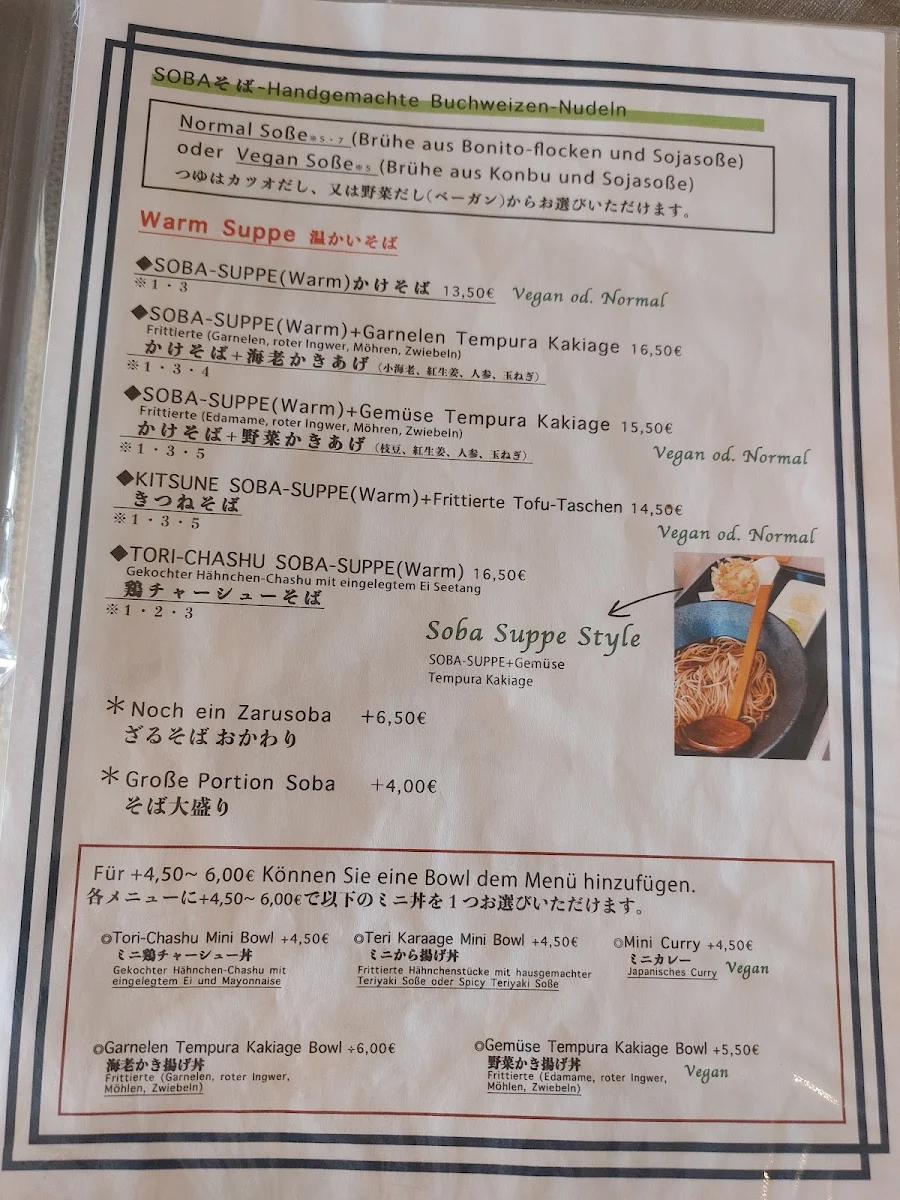 SOBAそば-Handgemachte Buchweizen-Nudeln
Normal Soße※5・7 (Brühe aus Bonito-flocken und Sojasoße)
oder Vegan Soße※5 (Brühe aus Konbu und Sojasoße)
つゆはカツオだし、又は野菜だし(ベーガン)からお選びいただけます。
Warm Suppe 温かいそば
◆SOBA-SUPPE(Warm)かけそば 13,50€ Vegan od. Normal
※1・3
◆SOBA-SUPPE(Warm)+Garnelen Tempura Kakiage 16,50€
Frittierte (Garnelen, roter Ingwer, Möhren, Zwiebeln)
かけそば+海老かきあげ (小海老、紅生姜、人参、玉ねぎ)
※1・3・4
◆SOBA-SUPPE(Warm)+Gemüse Tempura Kakiage 15,50€
Frittierte (Edamame, roter Ingwer, Möhren, Zwiebeln)
かけそば+野菜かきあげ (枝豆、紅生姜、人参、玉ねぎ)
Vegan od. Normal
※1・3・5
◆KITSUNE SOBA-SUPPE(Warm)+Frittierte Tofu-Taschen 14,50€
きつねそば
※1・3・5
Vegan od. Normal
◆TORI-CHASHU SOBA-SUPPE(Warm) 16,50€
Gekochter Hähnchen-Chashu mit eingelegtem Ei Seetang
鶏チャーシューそば
※1・2・3
Soba Suppe Style
SOBA-SUPPE+Gemüse
Tempura Kakiage
＊Noch ein Zarusoba +6,50€
ざるそば おかわり
＊Große Portion Soba +4,00€
そば大盛り
Für +4,50~ 6,00€ Können Sie eine Bowl dem Menü hinzufügen.
各メニューに+4,50~ 6,00€で以下のミニ丼を1つお選びいただけます。
◎Tori-Chashu Mini Bowl +4,50€
ミニ鶏チャーシュー丼
Gekochter Hähnchen-Chashu mit
eingelegtem Ei und Mayonnaise
◎Teri Karaage Mini Bowl +4,50€
ミニから揚げ丼
Frittierte Hähnchenstücke mit hausgemachter
Teriyaki Soße oder Spicy Teriyaki Soße
◎Mini Curry +4,50€
ミニカレー
Japanisches Curry Vegan
◎Garnelen Tempura Kakiage Bowl ÷6,00€
海老かき揚げ丼
Frittierte (Garnelen, roter Ingwer,
Möhlen, Zwiebeln)
◎Gemüse Tempura Kakiage Bowl +5,50€
野菜かき揚げ丼
Frittierte (Edamame, roter Ingwer,
Möhlen, Zwiebeln)
Vegan